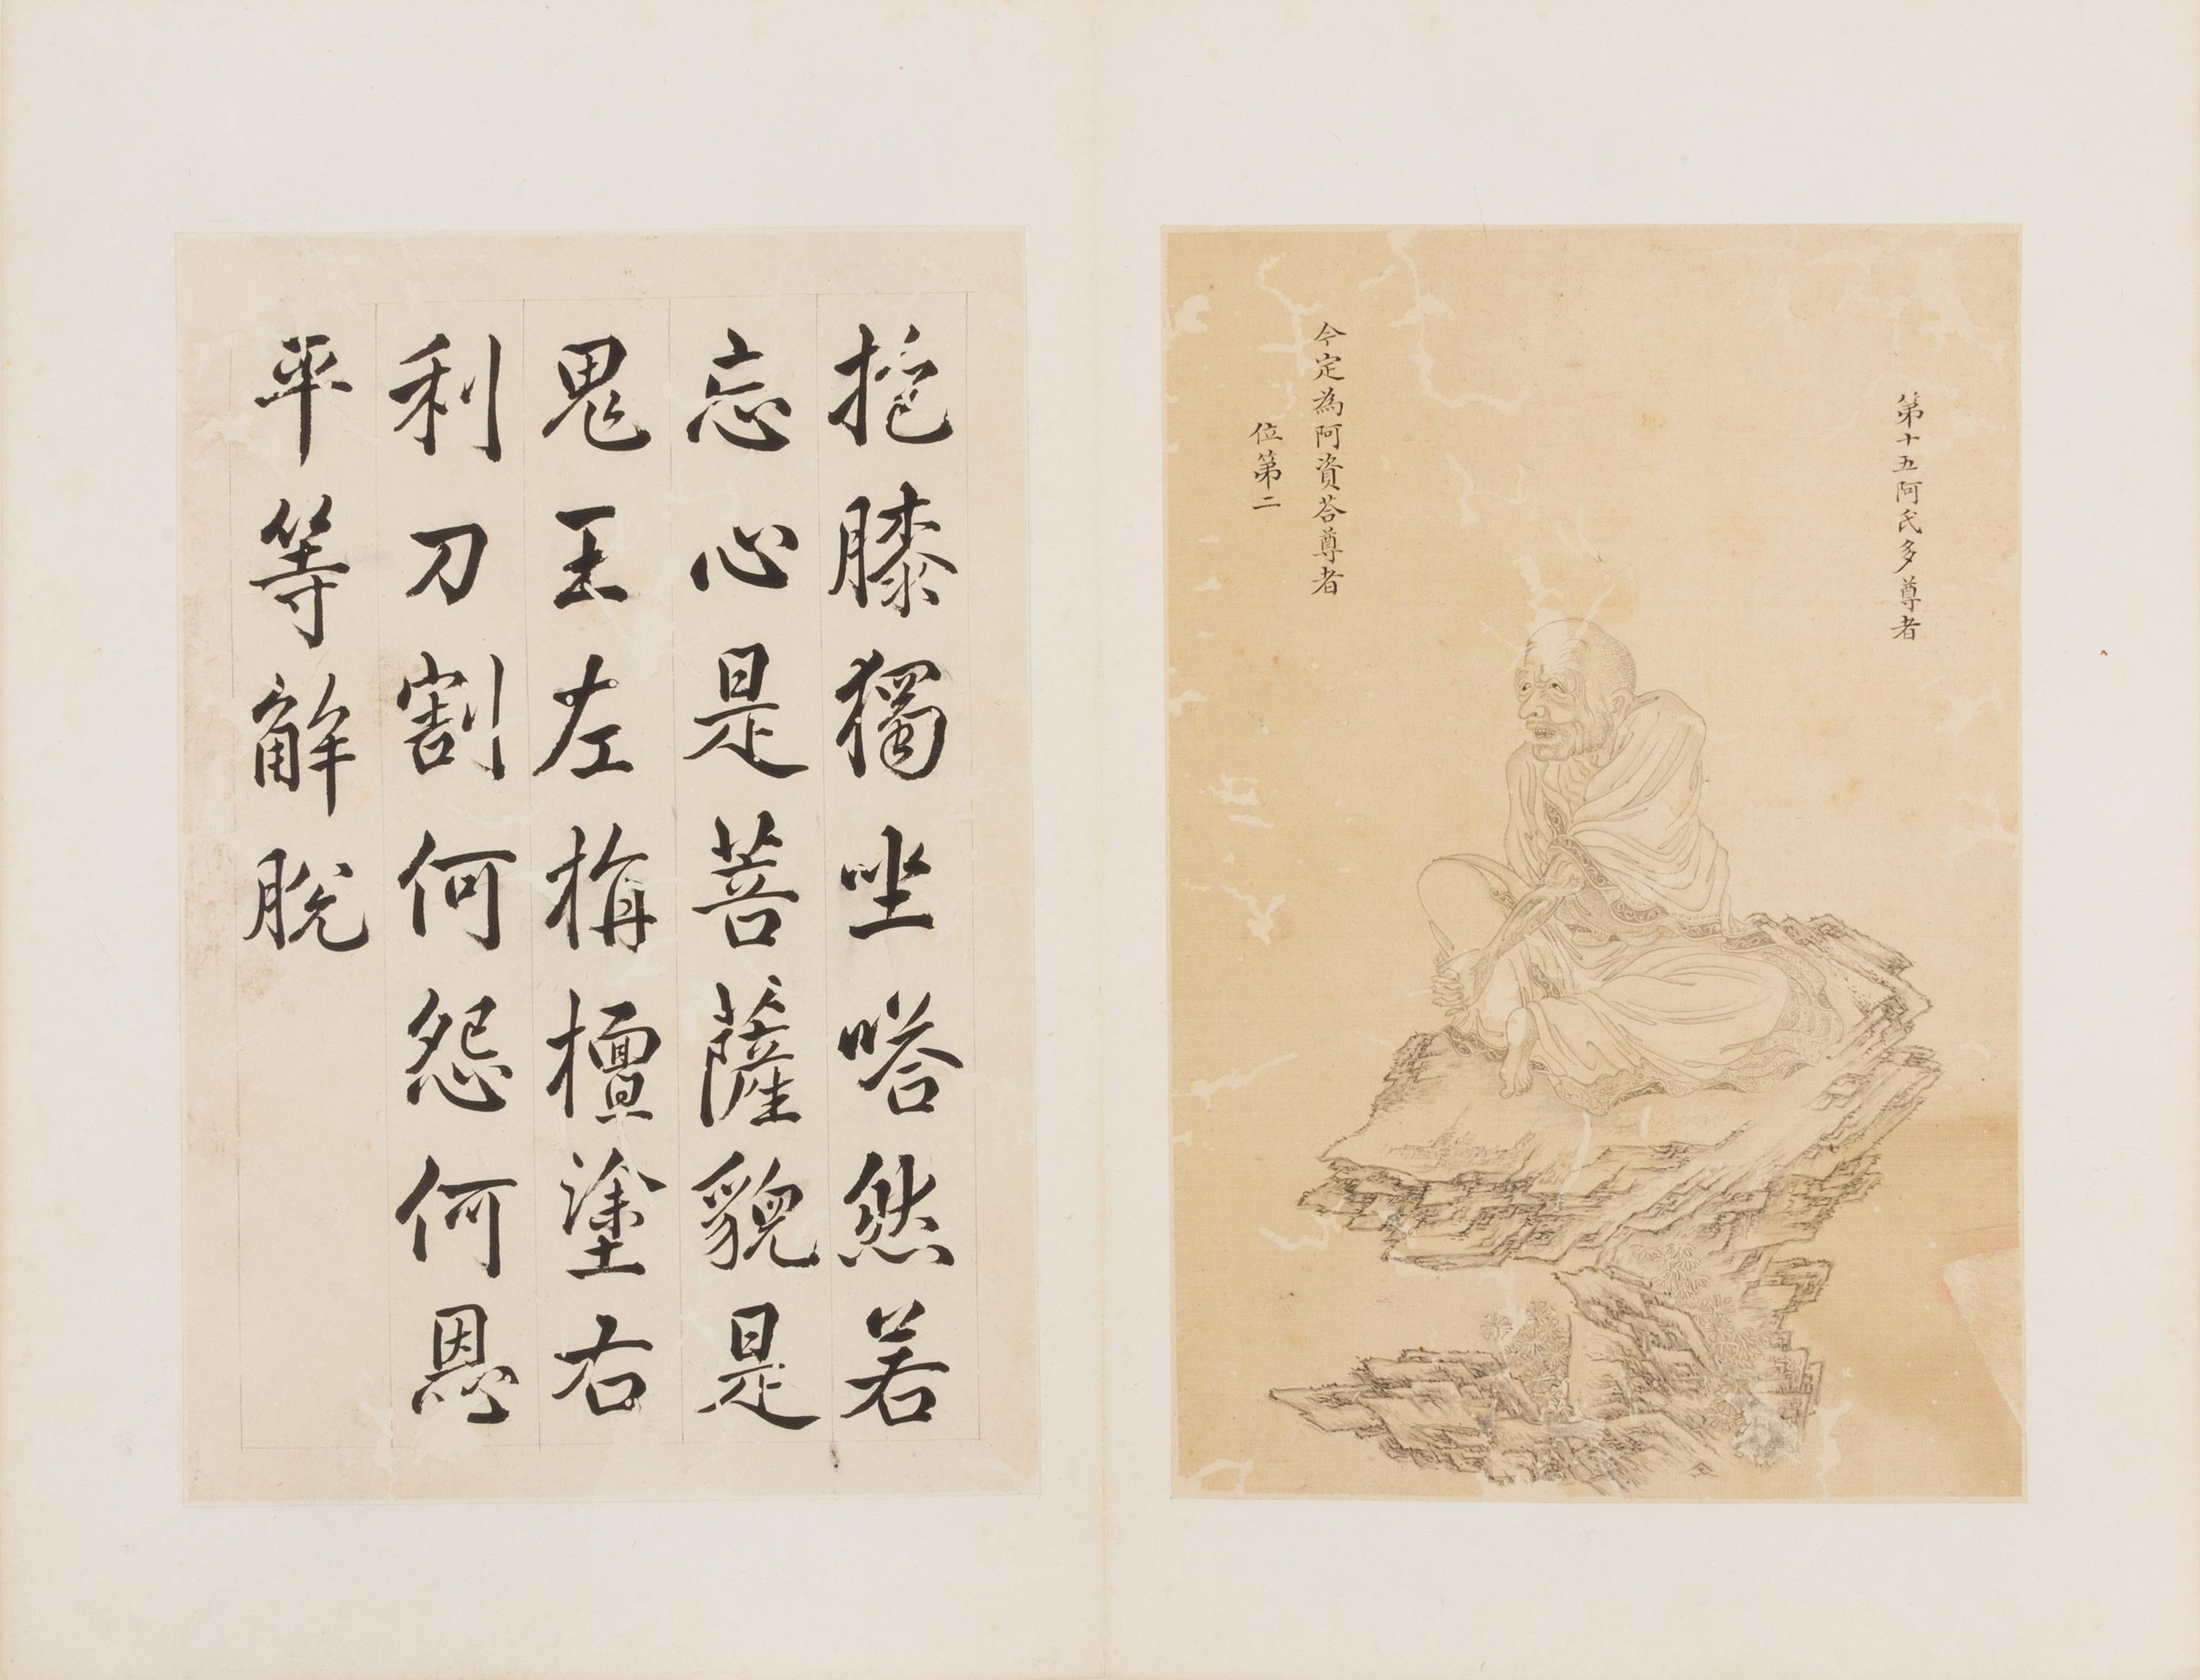 第十五阿氏多尊者
今定為阿資荅尊者
位第二
抱膝獨坐嗒然若
忘心是菩薩貌是
鬼王左栴檀塗右
利刀割何怨何恩
平等解脫